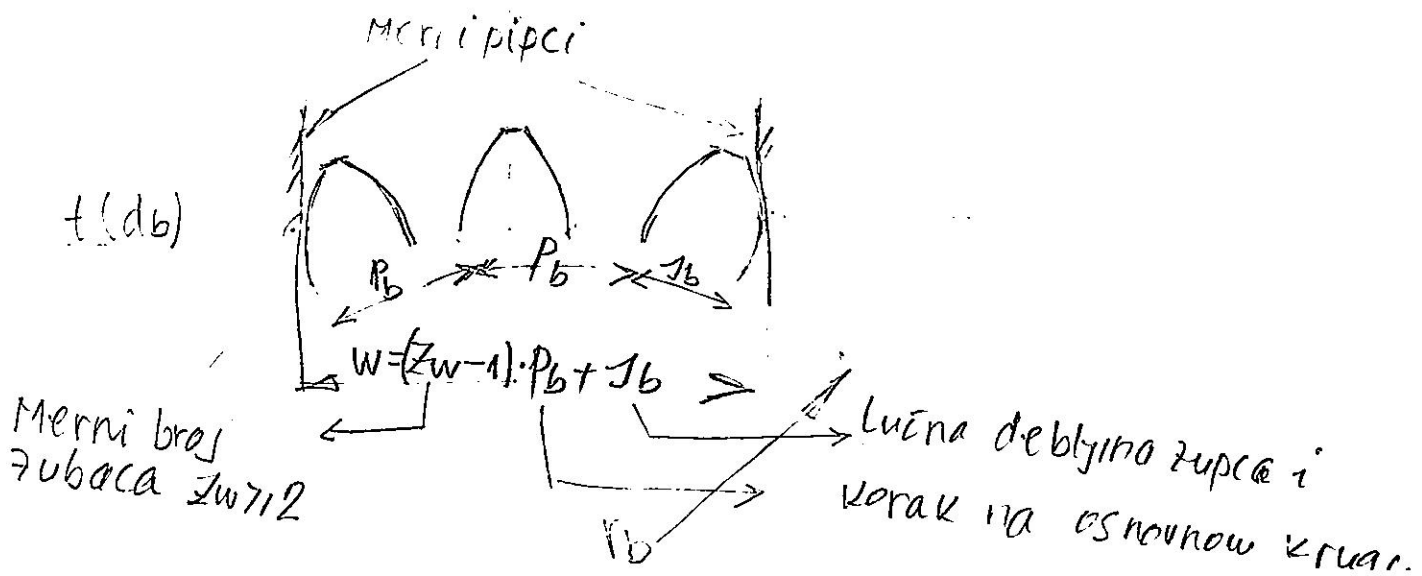 Merni pipci
t(db)
Pb
Pb
sb
W=(Zw-1)·Pb+sb
Merni broj
zubaca Zw≥2
rb
Lučna debljina zupca i
korak na osnovnom